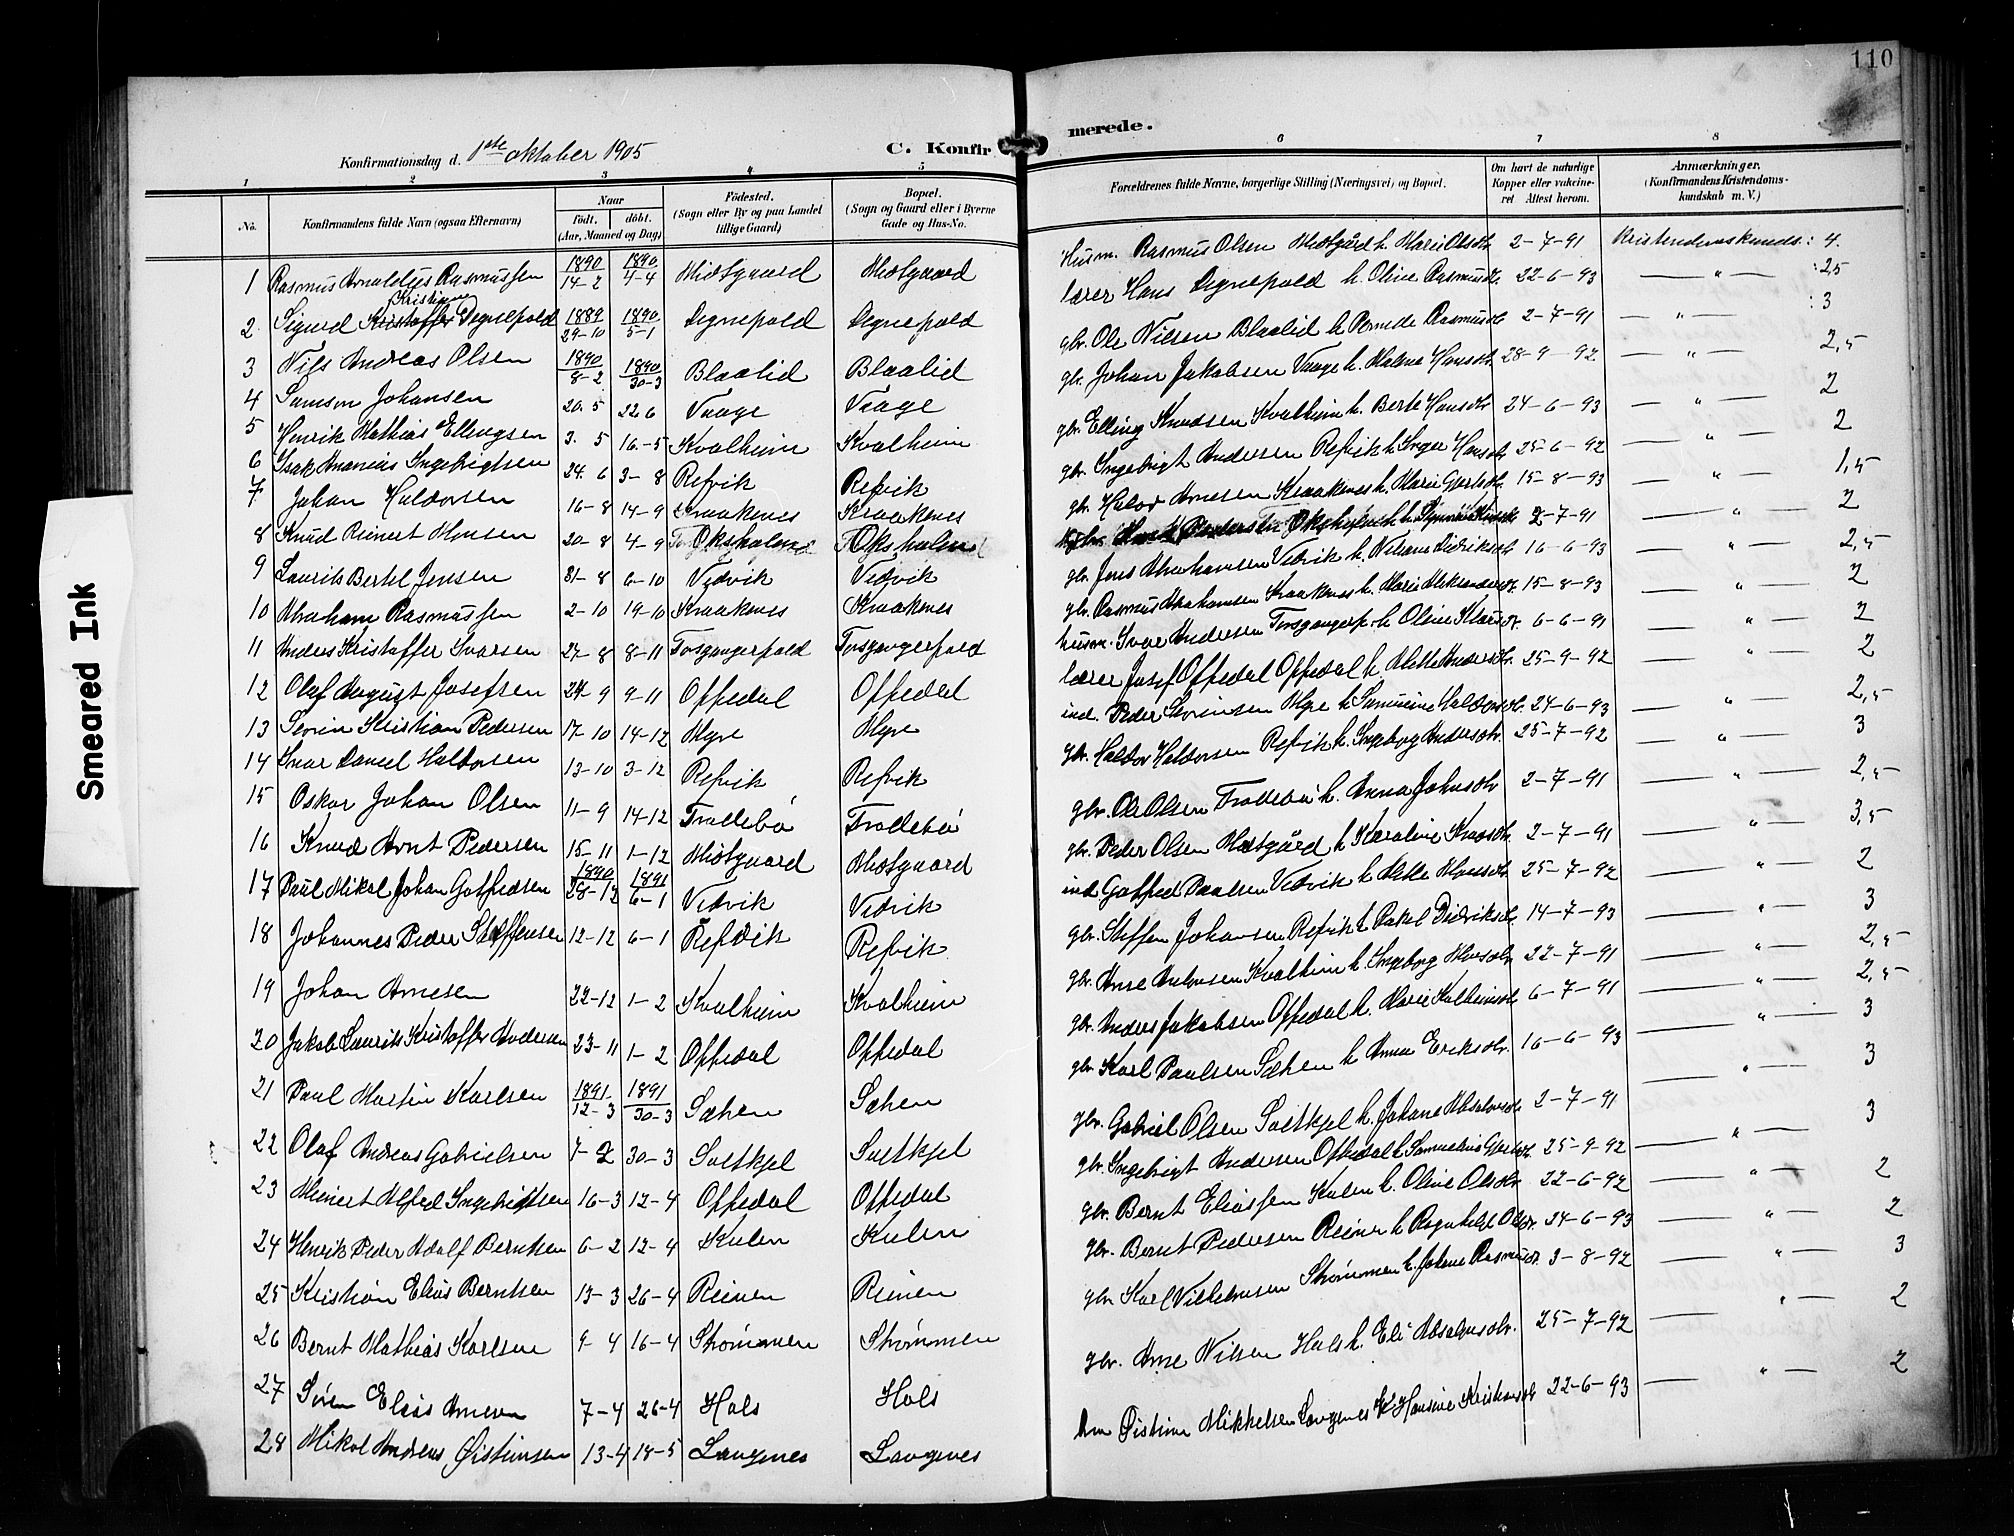 110
Konfirmationsdag d. 1ste oktober 1905
C. Konfirmerede.
1 2 3 4 5 6 7 8
No.
Konfirmandens fulde Navn (ogsaa Efternavn)
Naar
født. døbt.
(Aar, Maaned og Dag)
Fødested.
(Sogn eller By og paa Landet
tillige Gaard)
Bopæl.
(Sogn og Gaard eller i Byerne
Gade og Hus-No.
Forældrenes fulde Navne, borgerlige Stilling (Næringsvei) og Bopæl.
Om havt de naturlige
Kopper eller vakcine-
ret Attest herom.
Anmærkninger.
(Konfirmandens Kristendoms-
kundskab m. V.)
1 Rasmus Arnoldus Rasmussen 1890 14-2 1890 4-4 Midtgaard Midtgaard Husm. Rasmus Olsen Midtgård h. Marie Olsdtr. 2-7-91 Kristendomskunds.: 4.
2 Sigurd Kristian Degnepold 1889 29-10 1890 5-1 Degnepold Degnepold lærer Hans Degnepold h. Oline Rasmusdtr. 22-6-93 — " — : 2,5
3 Nils Andreas Olsen 1890 8-2 1890 30-3 Blaalid Blaalid gbr. Ole Nilsen Blaalid h. Pernede Rasmusdtr. 2-7-91 — " — : 3
4 Samson Johansen 20-5 22-6 Vaage Vaage gbr. Johan Jakobsen Vaage h. Malene Hansdtr. 28-9-92 — " — 2,5
5 Henrik Mathias Ellingsen 3-5 16-5 Kvalheim Kvalheim gbr. Elling Knudsen Kvalheim h. Berte Hansdtr. 24-6-93 — " — 2
6 Isak Ananias Ingebrigtsen 24-6 3-8 Refvik Refvik gbr. Ingebrigt Andersen Refvik h. Inger Hansdtr. 25-6-92 " — 2
7 Johan Haldorsen 16-8 14-9 Kraakenes Kraakenes gbr. Haldor Arnesen Kraakenes h. Marie Gjertsdtr. 15-8-93 " — 1,5
8 Knud Reinert Hansen 20-8 4-9 Oksholmen Oksholmen 2-7-91 " — 2
9 Laurits Bertel Jensen 31-8 6-10 Vedvik Vedvik gbr. Jens Abrahamsen Vedvik h. Nilsane Didriksdtr. 16-6-93 " — 2
10 Abraham Rasmussen 2-10 19-10 Kraakenes Kraakenes gbr. Rasmus Abrahamsen Kraakenes h. Marie Aleksandersdtr. 15-8-93 " — 2,5
11 Anders Kristoffer Ivarsen 27-8 8-11 Torsgangerpold Torsgangerpold husm. Ivar Andersen Torsgangerp. h. Oline Klausdtr. 6-6-91 " — 2
12 Olaf August Josefsen 24-9 9-11 Oppedal Oppedal lærer Josef Oppedal Oppedal h. Mette Andersdtr. 25-9-92 " — 2
13 Sevrin Kristian Pedersen 17-10 14-12 Myre Myre ind. Peder Sevrinsen Myre h. Samuine Haldorsdtr. 24-6-93 " — 2
14 Ivar Daniel Haldorsen 13-10 3-12 Refvik Refvik gbr. Haldor Haldorsen Refvik h. Ingeborg Andersdtr. 25-7-92 " — 2,5
15 Oskar Johan Olsen 11-9 14-12 Trollebø Trollebø gbr. Ole Olsen Trollebø h. Anna Johnsdtr 2-7-91 — " — 3
16 Knud Arnt Pedersen 15-11 1-12 Midtgaard Midtgaard gbr. Peder Olsen Midtgård h. Karoline Knudsdtr. 2-7-91 — " — 2,5
17 Paul Mikal Johan Gotfredsen 1890 28-12 1891 6-1 Vedvik Vedvik ind. Gotfred Paulsen Vedvik h. Mette Hansdtr. 25-7-92 — " — 3,5
18 Johannes Peder Steffensen 12-12 6-1 Refvik Refvik gbr. Steffen Johansen Refvik h. Rakel Didriksdtr. 14-7-93 — " — 2
19 Johan Arnesen 22-12 1-2 Kvalheim Kvalheim gbr. Arne Andersen Kvalheim h. Ingeborg Hansdtr. 22-7-91 — " — 3
20 Jakob Laurits Kristoffer Andersen 23-11 1-2 Oppedal Oppedal gbr. Anders Jakobsen Oppedal h. Marie 6-7-91 — " — 2,5
21 Paul Martin Karlsen 1891 12-3 1891 30-3 Sæhen Sæhen gbr. Karl Paulsen Sæhen h. Anna Eriksdtr. 16-6-93 — " — 2,5
22 Olaf Andreas Gabrielsen 7-2 30-3 gbr. Gabriel Olsen h. Johane Absalonsdtr. 2-7-91 — " — 3
23 Meinert Alfred Ingebrigtsen 16-3 12-4 Oppedal Oppedal gbr. Ingebrigt Andersen Oppedal h. 25-9-92 — " — 3
24 Henrik Peder Adolf Berntsen 6-2 12-4 Kulen Kulen gbr. Bernt Eliassen Kulen h. Oline Olsdtr. 22-6-92 — " — 3
25 Kristian Elias Berntsen 13-3 26-4 Reinen Reinen gbr. Bernt Pedersen Reinen h. Ragnhild Olsdtr. 24-6-93 — " — 2
26 Bernt Mathias Karlsen 9-4 16-4 Strømmen Strømmen gbr. Karl Vilhelmsen Strømmen h. Johane Rasmusdtr. 3-8-92 — " — 2
27 Søren Elias Arnesen 7-4 26-4 Hals Hals gbr. Arne Nilsen Hals h. Eli Absalonsdtr. 25-7-92 — " — 3
28 Mikal Andreas Øistensen 13-4 18-5 Langenes Langenes Mikkelsen Langenes h. Hansine Kristiansdtr 22-6-93 — " — 2
— " — 2
Smeared Ink